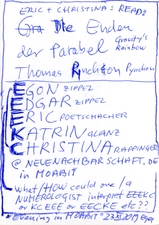 ERIC + CHRISTINA: READ:
Die Enden
der Parabel Gravity's Rainbow
Thomas Pynchon Pynchon
EGON ZIPPEL
EDGAR ZIPPEL
ERIC POETSCHACHER
KATRIN GLANZ
CHRISTINA RAPPINGER
@ NEUENACHBARSCHAFT.DE
in MOABIT
What/HOW could one/a
NUMEROLOGIST interpret EEEKC
or KCEEE or EECKE etc??
"Evening in MOABIT" 2019